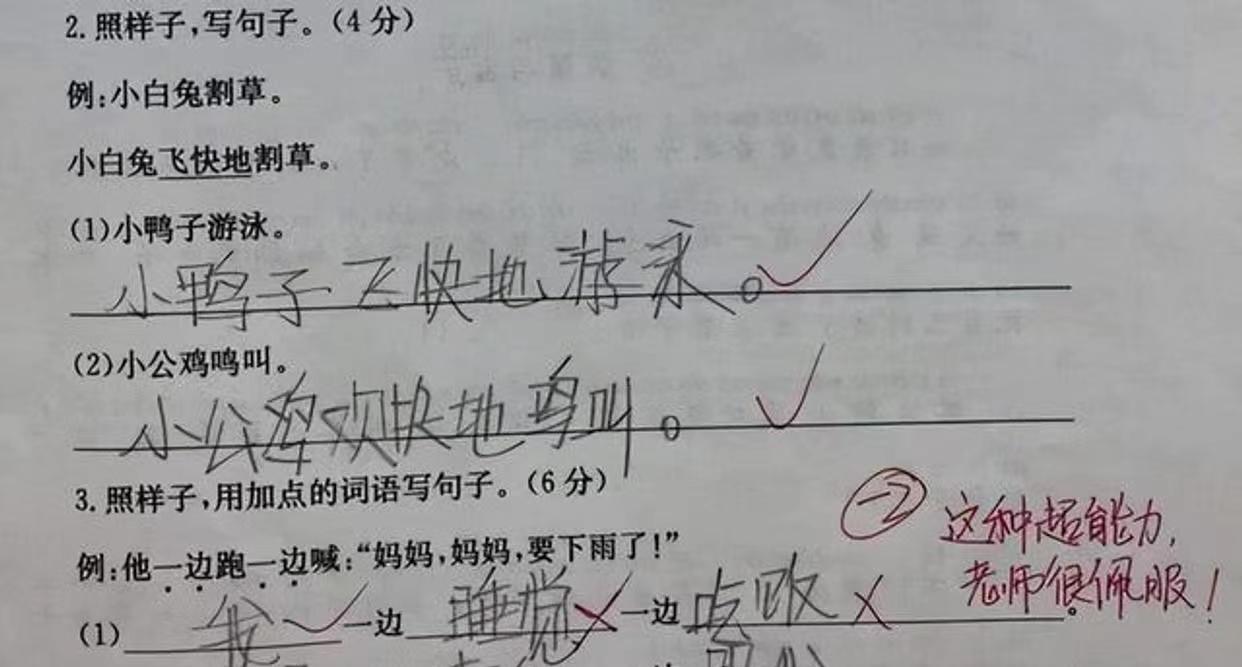 2.照样子,写句子。(4分)
例:小白兔割草。
小白兔飞快地割草。
(1)小鸭子游泳。
小鸭子飞快地游泳。
(2)小公鸡鸣叫。
小公鸡欢快地鸣叫。
3.照样子,用加点的词语写句子。(6分)
-2 这种超能力,
老师很佩服!
例:他一边跑一边喊:“妈妈,妈妈,要下雨了!”
(1)我一边睡觉一边。